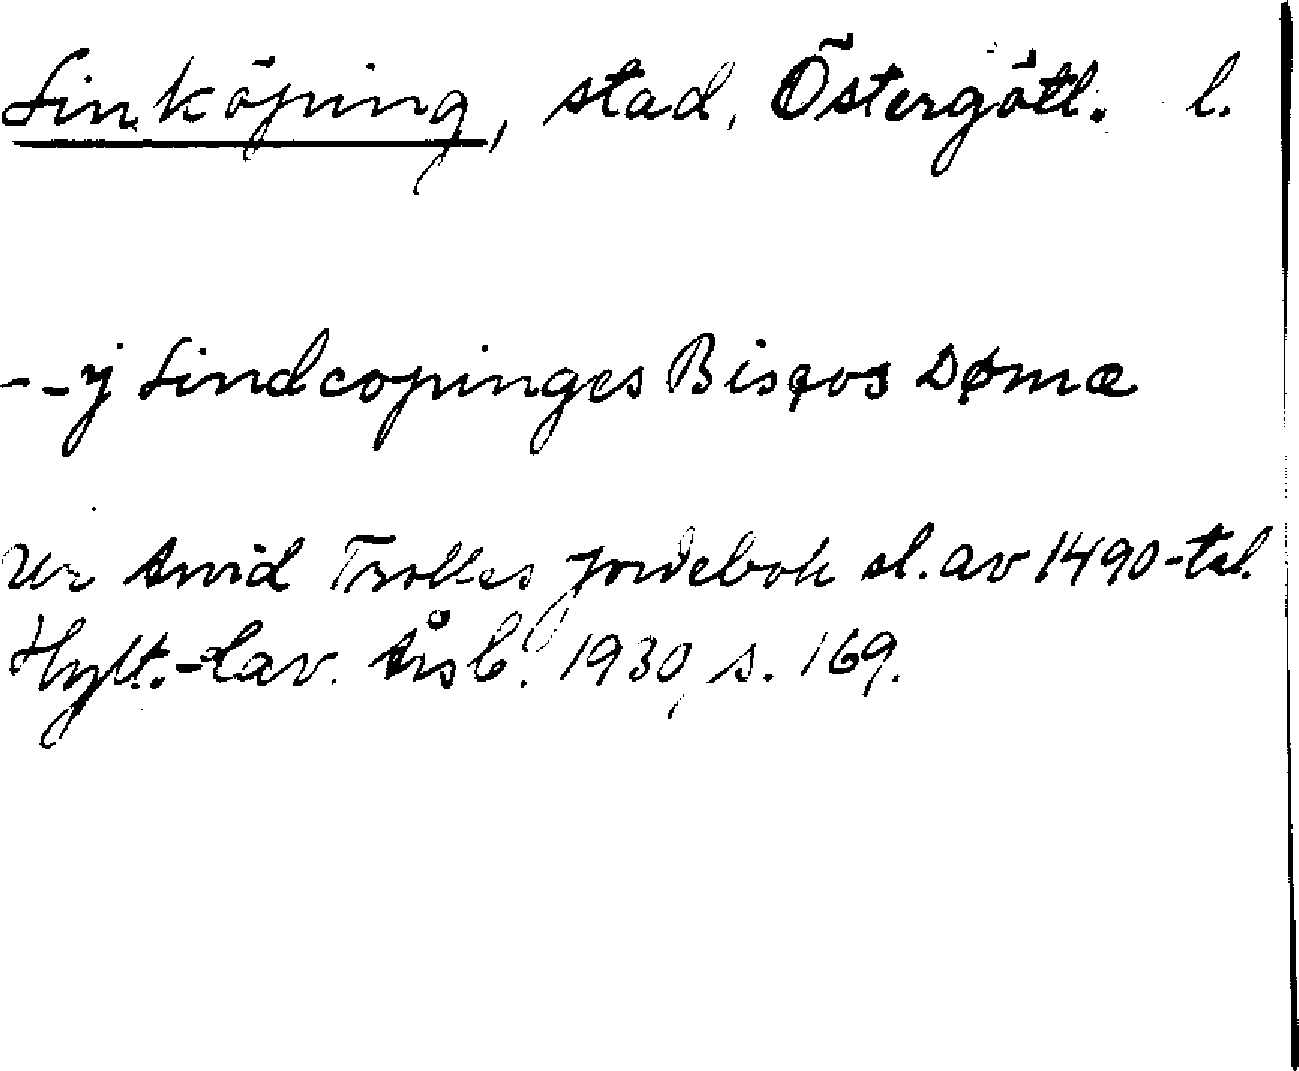 Linköping, stad, Östergötl. l.
--ÿ Lindcopinges Bisꝑos Dømæ
Ur Arvid Trolles jordebok sl. av 1490-tal.
Hylt.-Cav. Årsb. 1930, s. 169.